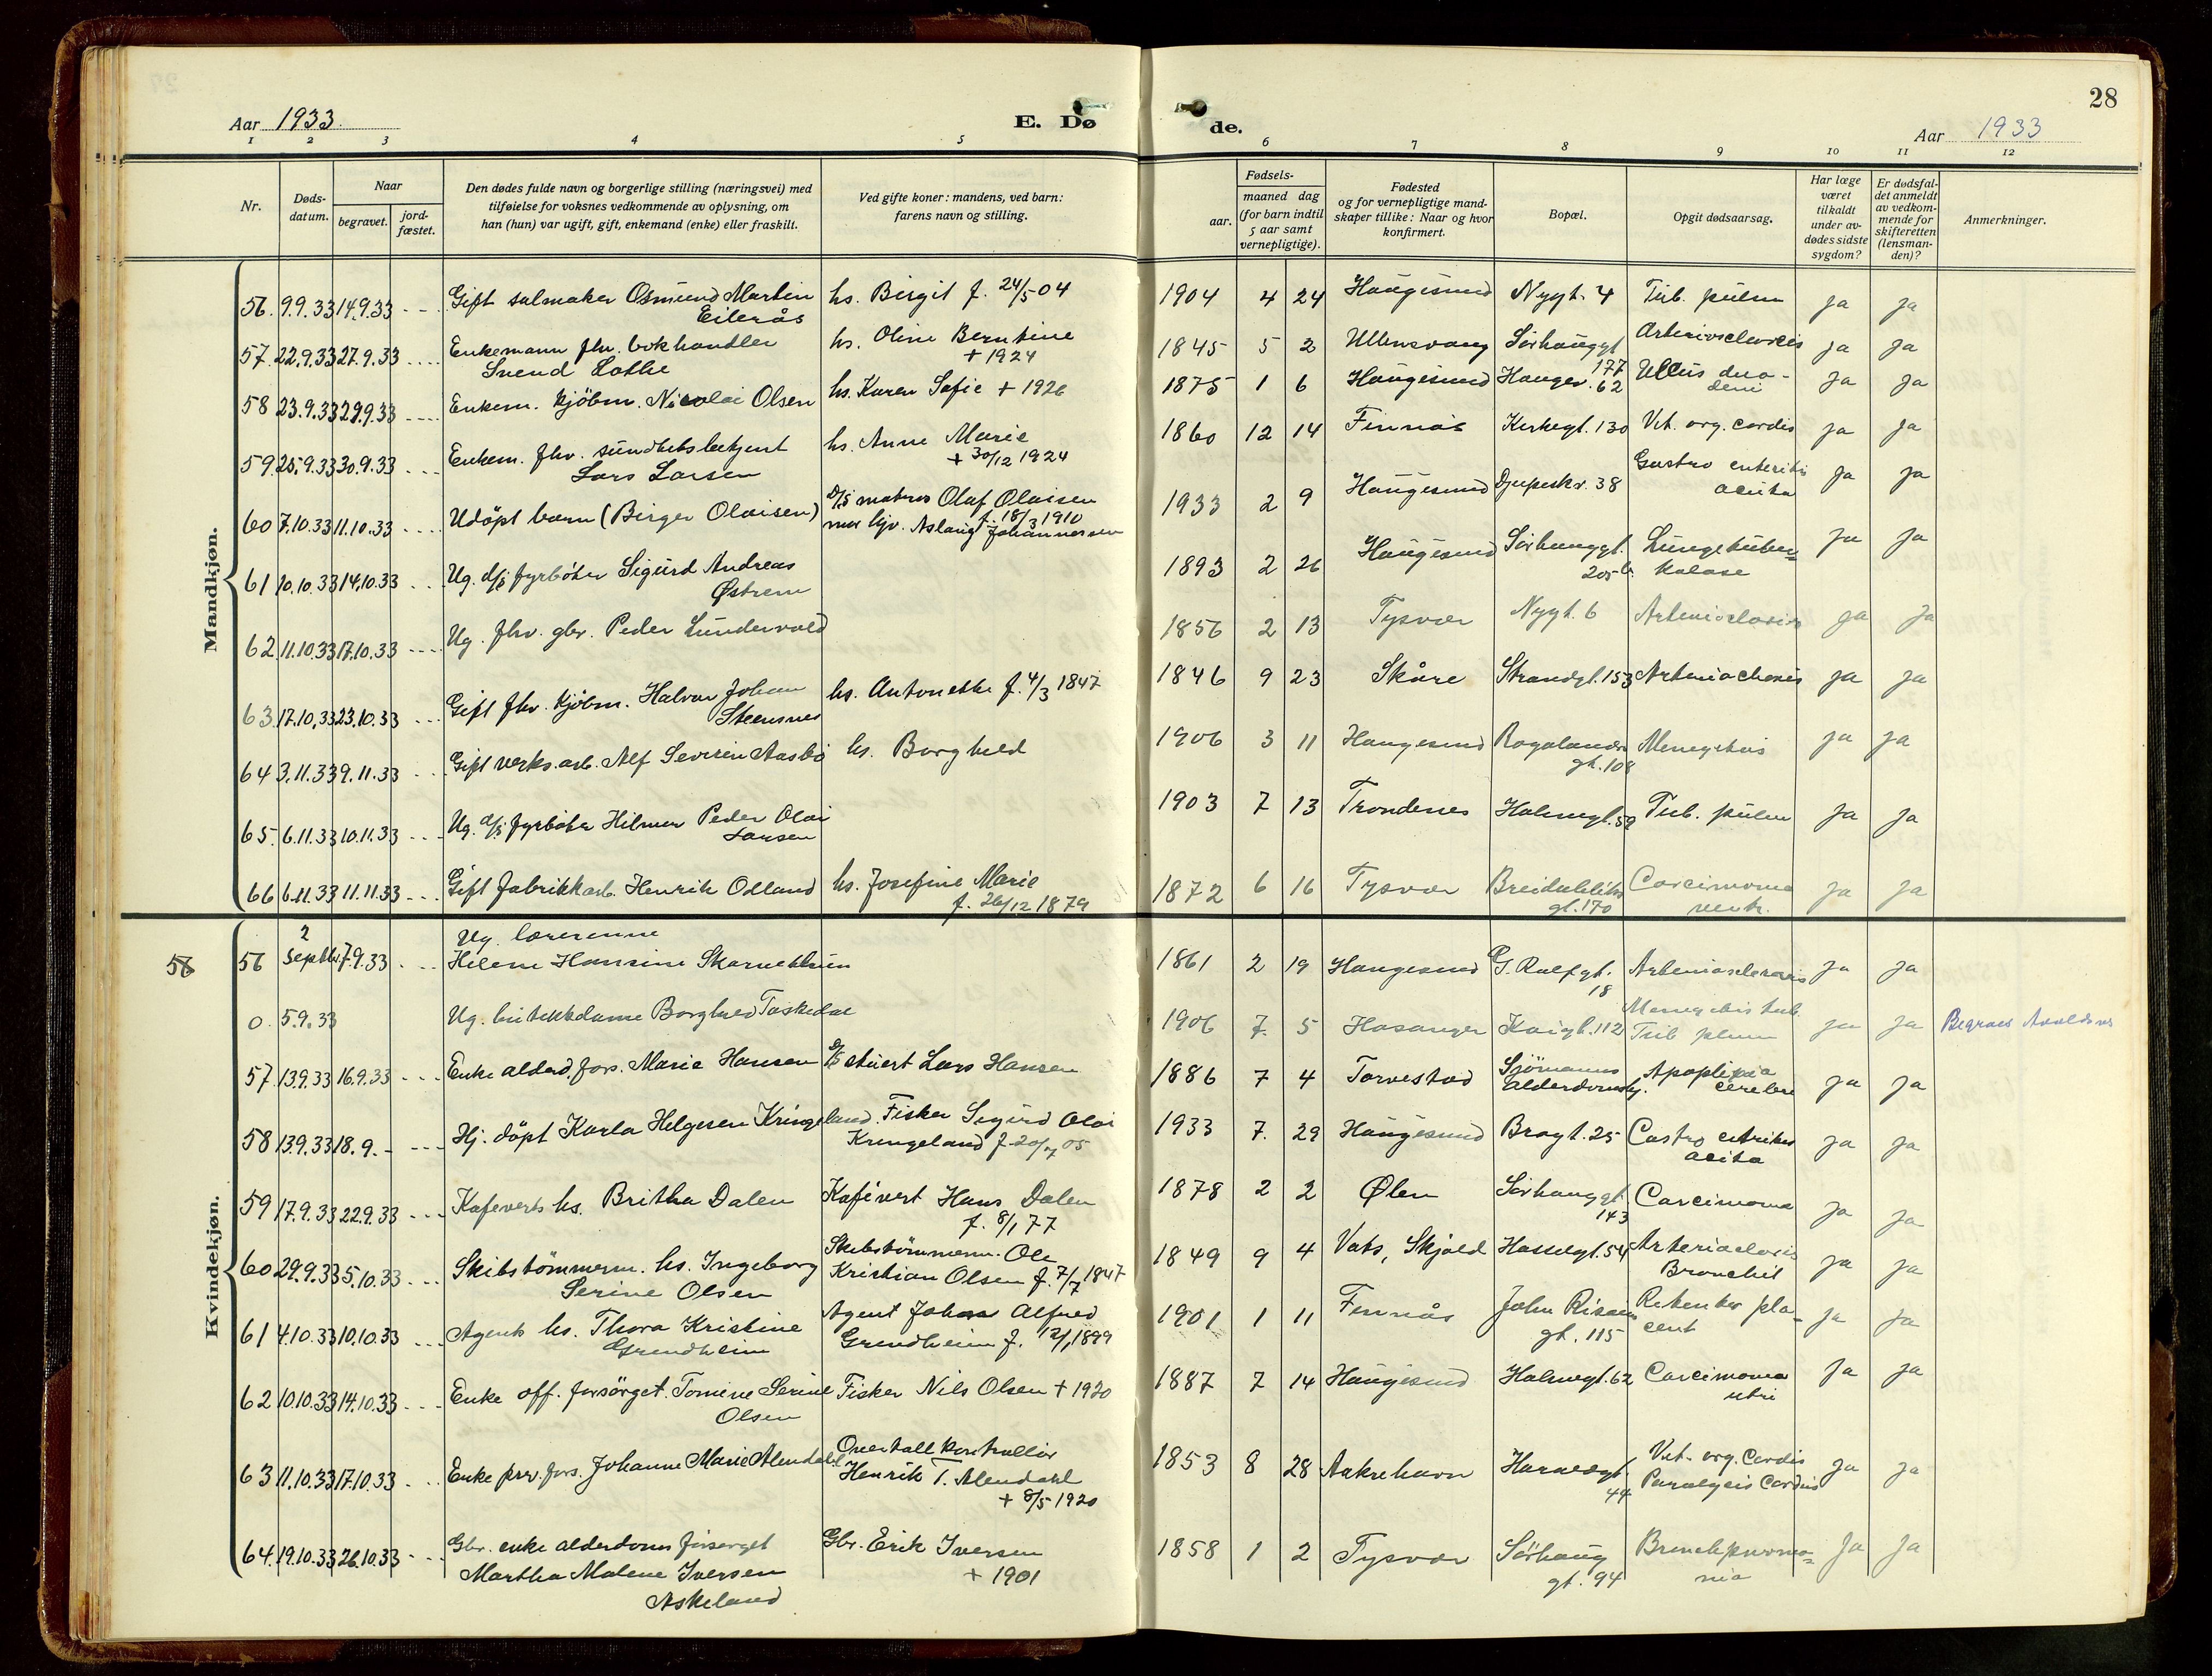 28
Aar 1933.
E. Dø
de.
Aar 1933
1 2 3 4 5 6 7 8 9 10 11 12
Nr.
Døds-
datum.
Naar
begravet.
jord-
fæstet.
Den dødes fulde navn og borgerlige stilling (næringsvei) med
tilføielse for voksnes vedkommende av oplysning, om
han (hun) var ugift, gift, enkemand (enke) eller fraskilt.
Ved gifte koner: mandens, ved barn:
farens navn og stilling.
Fødsels-
aar.
maaned dag
(for barn indtil
5 aar samt
vernepligtige).
Fødested
og for vernepligtige mand-
skaper tillike: Naar og hvor
konfirmert.
Bopæl.
Opgit dødsaarsag.
Har læge
været
tilkaldt
under av-
dødes sidste
sygdom?
Er dødsfal-
det anmeldt
av vedkom-
mende for
skifteretten
(lensman-
den)?
Anmerkninger.
Mandkjøn.
56. 9.9.33 14.9.33 Gift salmaker Osmund Martin hs. Birgit f. 24/5 04 1904 4 24 Haugesund Nygt. 4 Tub. pulm ja ja
Eilerås
57. 22.9.33 27.9.33 Enkemann fhv. bokhandler hs. Oline Berntine 1845 5 2 Ullensvang Sørhauggt Arteriosclerosis ja ja
Svend Lothe + 1924 177
58 23.9.33 29.9.33 Enkem. kjöbm. Nicolai Olsen hs. Karen Sofie + 1926 1875 1 6 Haugesund Hauger. 62 Ulcus duo-
deni ja ja
59. 25.9.33 30.9.33 Enkem. fhv. sundhetsbetjent hs. Anne Marie 1860 12 14 Finnås Kirkegt. 130 Vit. org. cordis ja ja
Lars Larsen + 30/12 1924
60 7.10.33 11.10.33 Udöpt barn (Birger Olaisen) D/S matros Olaf Olaisen 1933 2 9 Haugesund Djupeskr. 38 Gastro enteritis ja ja
f. 18/3 1910 acuta
Aslaug Johannessen
61 10.10.33 14.10.33 Ug. d/s fyrböter Sigurd Andreas 1893 2 26 Haugesund Sörhauggt. Lungetuber= ja ja
Østrem 205 b. kulose
62. 11.10.33 17.10.33 Ug. fhv. gbr. Peder Lundervold 1856 2 13 Tysvær Nygt. 6 Arteriosclerosis ja ja
63. 17.10.33 23.10.33 Gift fhv. kjöbm. Halvor Johan hs. Antonette f. 4/3 1847 1846 9 23 Skåre Strandgt. 153 ja ja
Steensnes
64 3.11.33 9.11.33 Gift verks.arb. Alf Severin Aasbö hs. Borghild 1906 3 11 Haugesund Rogalands ja ja
gt. 108
65. 6.11.33 10.11.33 Ug. d/s fyrböter Hilmer Peder Olai 1903 7 13 Trondenes Holmegt. 59 Tub. pulm ja ja
Larsen
66 6.11.33 11.11.33 Gift fabrikkarb. Henrik Odland hs. Josefine Marie 1872 6 16 Tysvær Breidabliks Carcimoma ja ja
f. 26/12 1879 gt. 170 ventr.
Kvindekjøn.
56 56 2 Septbr. 7.9.33 Ug. lærerinne
Helene Hansine 1861 2 19 Haugesund G. Rolfgt. Arteriosclerosis ja ja
18
0. 5.9.33 Ug. butikkdame Borghild Taskedal 1906 7. 5 Hosanger Kaigt. 112 Tub pulm ja ja Begraves Avaldsnes
57. 13.9.33 16.9.33 Enke alderd. fors. Marie Hansen D/S stuert Lars Hansen 1886 7 4 Torvestad Sjömanns Apoplexia ja ja
alderdomshj. cerebri
58 13.9.33 18.9.- Hj. döpt Karla Helgesen Kringeland. Fisker Sigurd Olai 1933 7. 29 Haugesund Bragt. 25 ja ja
Kringeland f 20/7 05 acuta
59 17.9.33 22.9.33 Kafeverts hs. Britha Dalen Kafévert Hans Dalen 1878 2 2 Ølen Sörhauggt. Carcimoma ja ja
f. 8/1 77 143
60 29.9.33 5.10.33 Skibstömmerm. hs. Ingeborg Skibstömmerm. Ole 1849 9 4 Vats, Skjold Hasselgt. 54 ja ja
Serine Olsen Kristian Olsen f. 7/7 1847 Bronchit
61 4.10.33 10.10.33 Agents hs. Thora Kristine Agent Johan Alfred 1901 1 11 Finnås John Risøen Retentio pla- ja ja
Grendheim Grendheim f. 12/1 1899 gt. 115 cent
62 10.10.33 14.10.33 Enke off. forsörget. Tomine Serine Fisker Nils Olsen + 1920 1887 7 14 Haugesund Holmegt. 62 Carcimoma ja ja
Olsen utri
63 11.10.33 17.10.33 Enke priv. fors. Johanne Marie Alendahl Overtollkontrollör 1853 8 28 Aakrehavn Haraldsgt. Vit. org. Cordis ja ja
Henrik T. Alendahl 44 Paralysis Cordis
+ 8/5 1920
64. 19.10.33 26.10.33 Gbr. enke alderdoms forsorget Gbr. Erik Iversen 1858 1 2 Tysvær Sörhaug Bronchpneumo= ja ja
Martha Malene Iversen + 1901 gt. 94 nia
Askeland